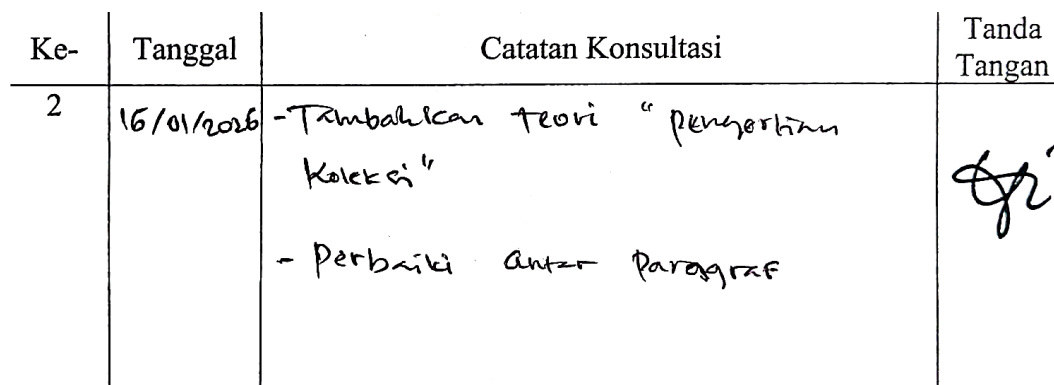 Ke- Tanggal Catatan Konsultasi Tanda Tangan
2 16/01/2026 -Tambahkan teori "pengertian
Koleksi"
- Perbaiki antar Paragraf